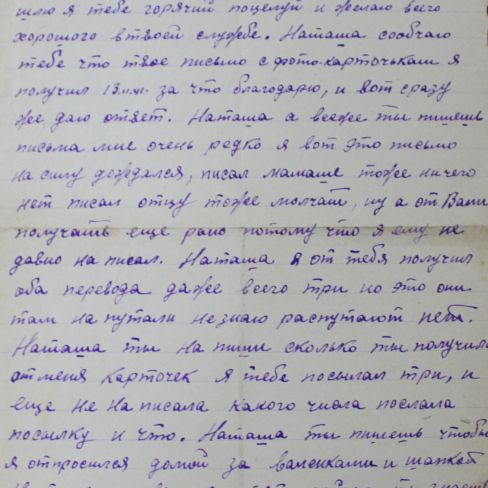 шлю я тебе горячий поцелуй и желаю всего
хорошого втвоей службе. Наташа сообчаю
тебе что твое письмо с фото-карточькам я
получил за что благодарю, и вот сразу
же даю отвят. Наташа а всеже ты пишешь
письма мне очень редко я вот это письмо
на силу дождался, писал мамаше тоже ничего
нет писал отцу тоже молчат, ну а от Вани
получать еще рано потому что я ему не
давно на писал. Наташа я от тебя получил
оба перевода даже всего три но это они
там на путали незнаю распутают
Наташа ты на пиши сколько ты получила
отменя карточек я тебе посылал три, и
еще не на писала какого числа послала
посылку и что. Наташа ты пишешь чтобы
я отпросился домой за валенками и шапкой